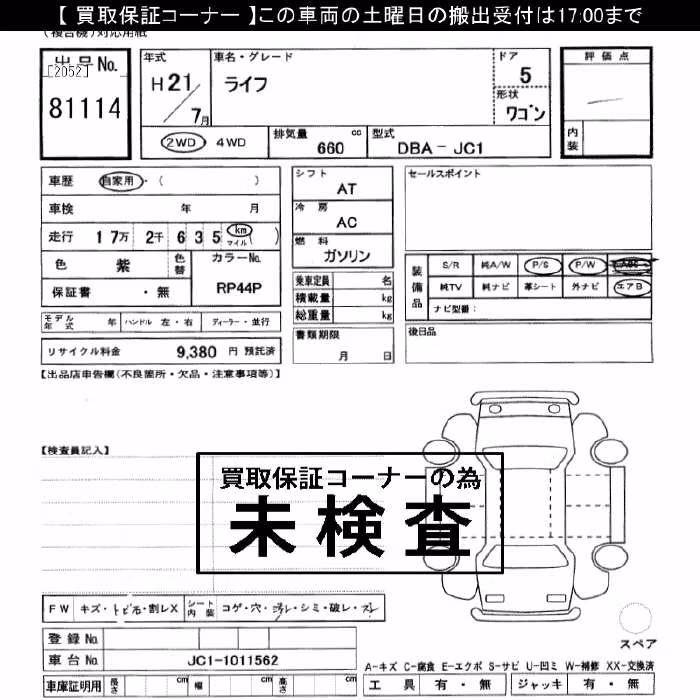 【 買取保証コーナー 】この車両の土曜日の搬出受付は17:00まで
(複合機)対応用紙
出品No. [2052] 81114
年式 H21/7月
車名・グレード ライフ
ドア 5
形状 ワゴン
評価点
内装
2WD・4WD
排気量 660 cc
型式 DBA-JC1
車歴 自家用・( )
車検 年 月
走行 17万 2千 6 3 5 km マイル ( )
色 紫 色替 カラーNo. RP44P
保証書 ・無
モデル年式 年 ハンドル 左・右 ディーラー・並行
リサイクル料金 9,380 円 預託済
シフト AT
冷房 AC
燃料 ガソリン
乗車定員 名
積載量 kg
総重量 kg
書類期限 月 日
セールスポイント
装備品 S/R 純A/W P/S P/W ABS
純TV 純ナビ 革シート 外ナビ エアB
ナビ型番:
後日品
【出品店申告欄(不良箇所・欠品・注意事項等)】
【検査員記入】
買取保証コーナーの為
未検査
FW キズ・トビ石・割レX シート内装 コゲ・穴・汚レ・シミ・破レ・スレ
登録No.
車台No. JC1-1011562
車庫証明用 長さ cm 幅 cm 高さ cm
スペア
A-キズ C-腐食 E-エクボ S-サビ U-凹ミ W-補修 XX-交換済
工具 有・無 ジャッキ 有・無